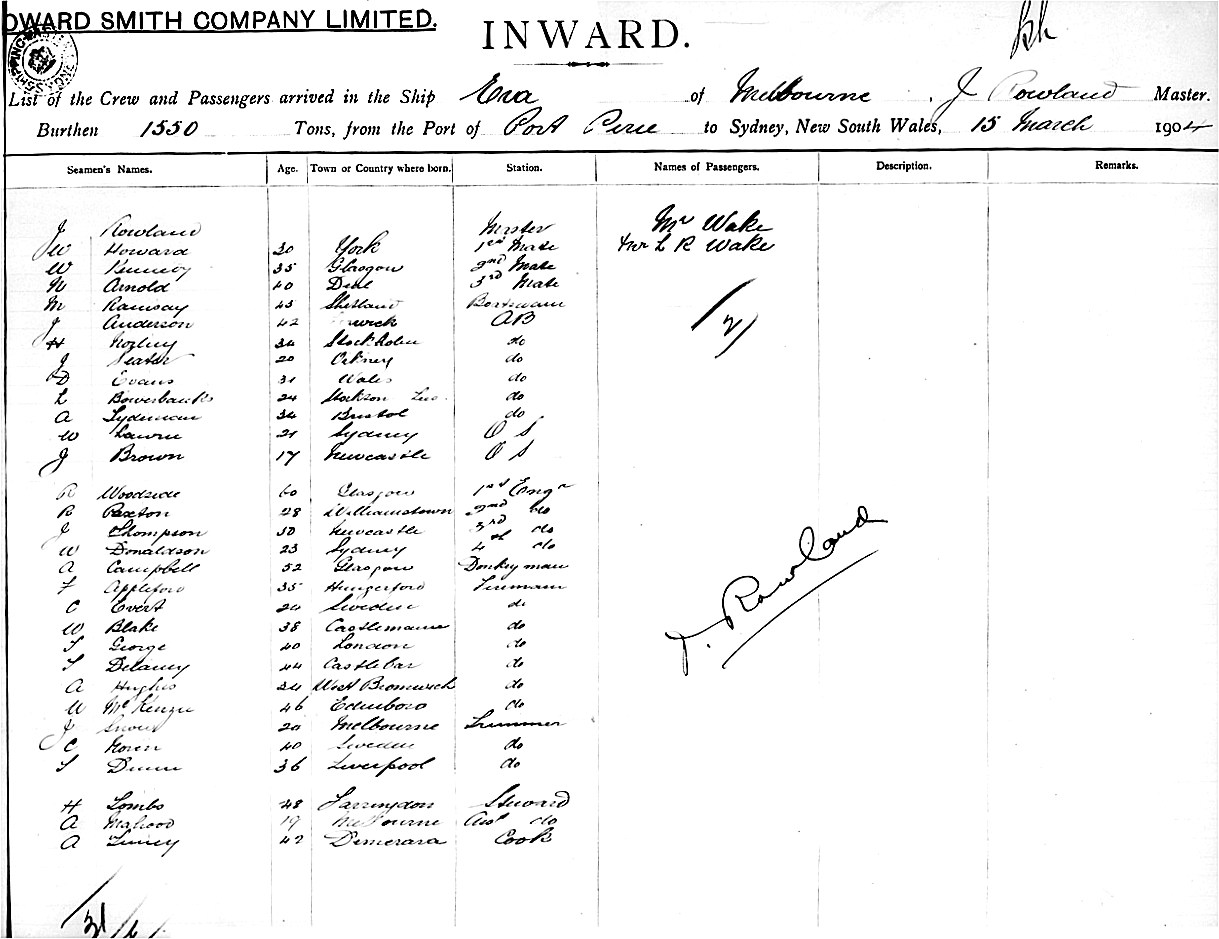 OWARD SMITH COMPANY LIMITED.
INWARD.
List of the Crew and Passengers arrived in the Ship Era of Melbourne, J Rowland Master.
Burthen 1550 Tons, from the Port of Port Pirie to Sydney, New South Wales, 15 March 1904
Seamen's Names. Age. Town or Country where born. Station. Names of Passengers. Description. Remarks.
J Rowland Master Mr Wake
W Howard 30 York 1st Mate L R Wake
W Kennedy 35 Glasgow 2nd Mate
M Arnold 40 Deal 3rd Mate
M Ramsay 45 Shetland Boatswain
J Anderson 42 AB
H 34 Stockholm do
J 20 Orkney do
D Evans 31 Wales do
L Bowerbank 24 Stockton do
A 34 Bristol do
W 21 Sydney O S
J Brown 17 Newcastle O S
R Woodside 60 Glasgow 1st Engr
R Paxton 28 Williamstown 2nd do
J Thompson 50 Newcastle 3rd do
W Donaldson 23 Sydney 4th do
A Campbell 52 Glasgow Donkeyman
F Appleford 35 Hungerford Fireman
C Evert 24 Sweden do
W Blake 38 Castlemaine do
T George 40 London do
T Delaney 44 Castlebar do
A Hughes 24 West Bromwich do
W McKenzie 46 Edinboro do
J 20 Melbourne Trimmer
C Noren 40 Sweden do
T Dunn 36 Liverpool do
H Tombs 48 Farringdon Steward
A 19 Melbourne Asst do
A 42 Demerara Cook
J. Rowland
31